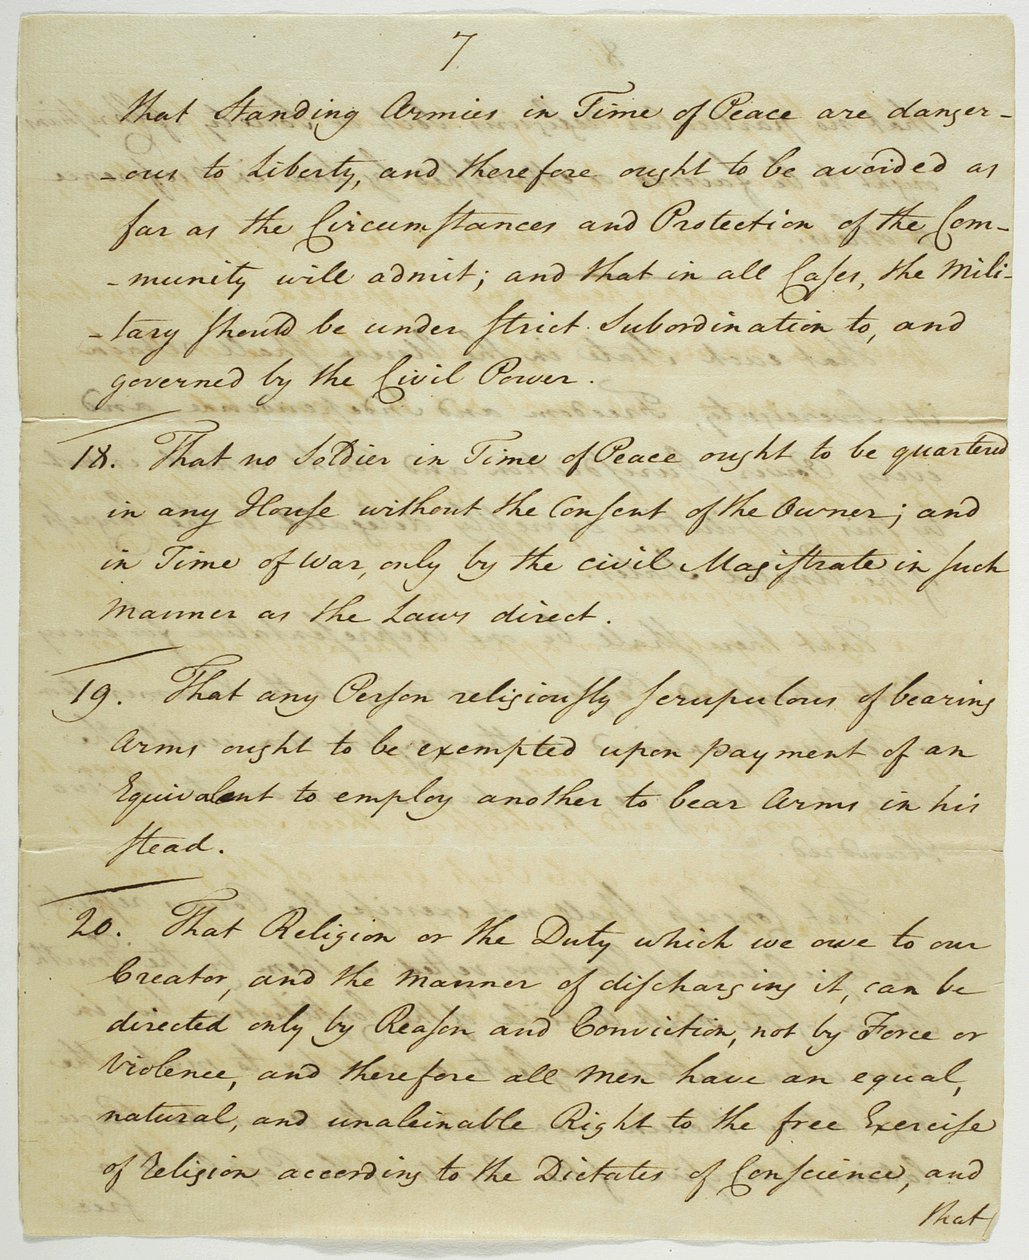 7
that Standing Armies in Time of Peace are danger-
-ous to Liberty, and therefore ought to be avoided as
far as the Circumstances and Protection of the Com-
-munity will admit; and that in all Cases, the Mili-
-tary should be under strict Subordination to, and
governed by the Civil Power.
18. That no Soldier in Time of Peace ought to be quartered
in any House without the Consent of the Owner; and
in Time of War, only by the civil Magistrate in such
Manner as the Laws direct.
19. That any Person religiously scrupulous of bearing
Arms ought to be exempted upon payment of an
Equivalent to employ another to bear Arms in his
stead.
20. That Religion or the Duty which we owe to our
Creator, and the Manner of discharging it, can be
directed only by Reason and Conviction, not by Force or
Violence, and therefore all Men have an equal,
natural, and unaleinable Right to the free Exercise
of Religion according to the Dictates of Conscience, and
that